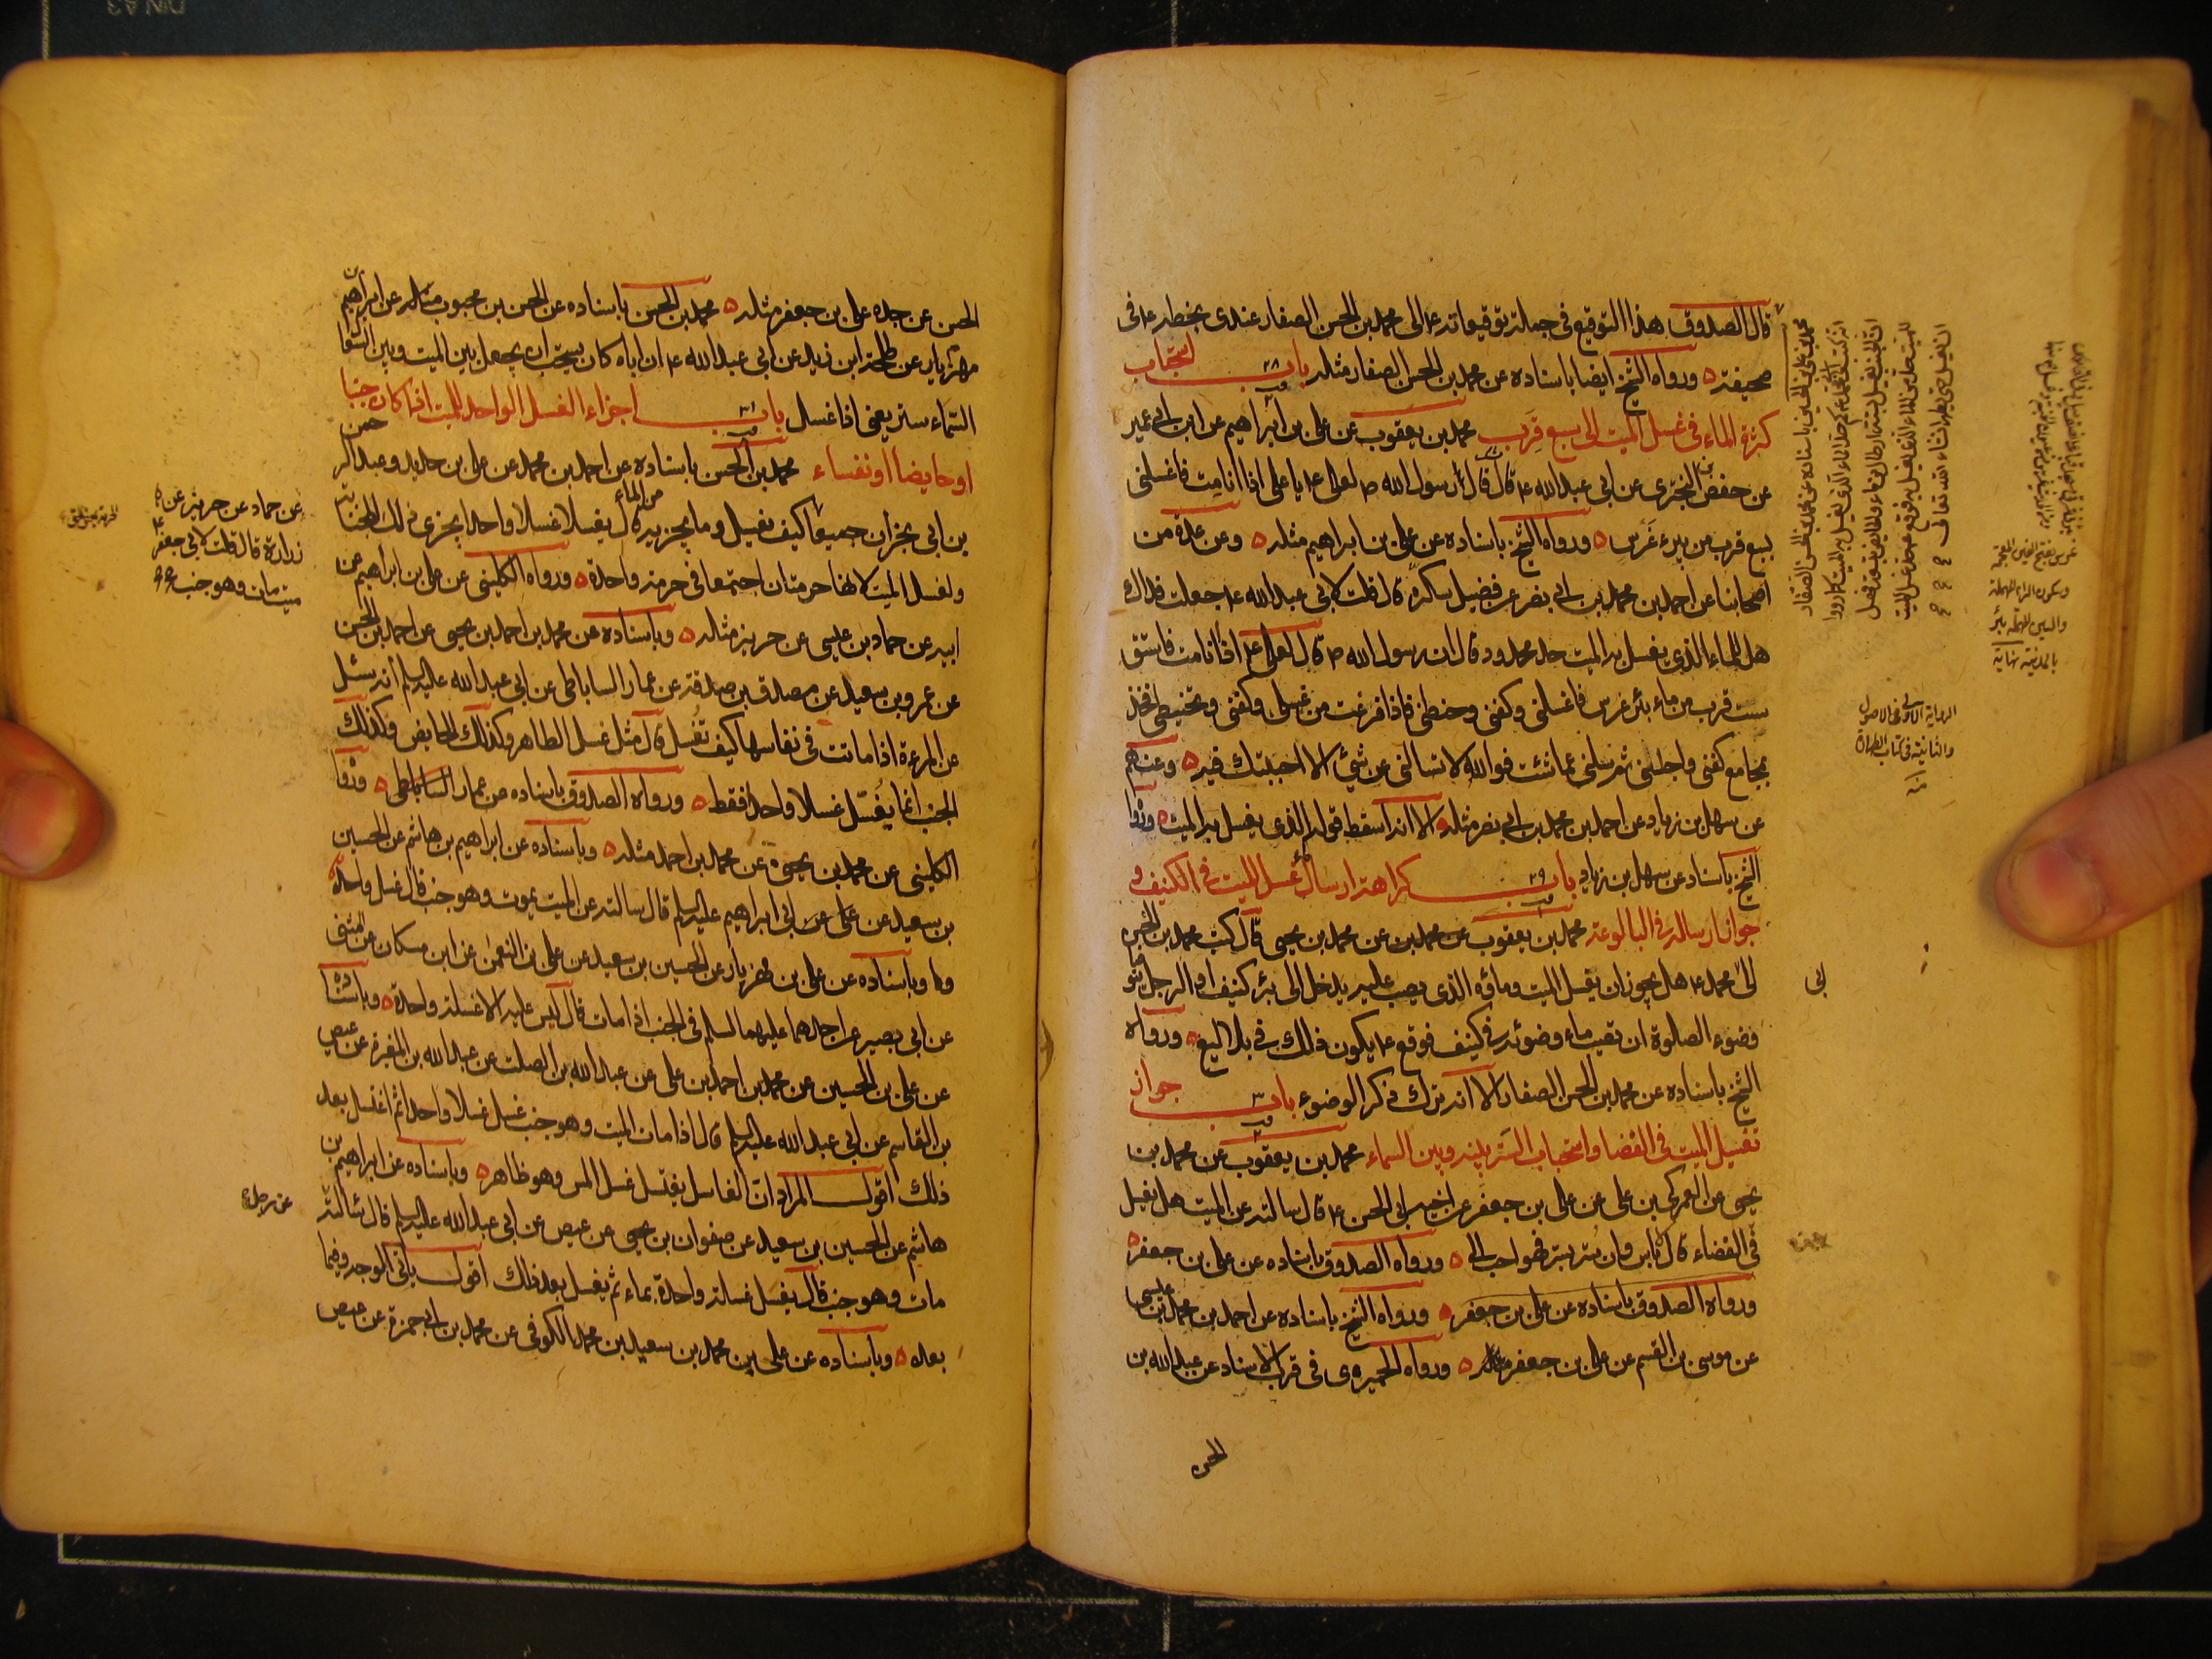 قال الصدوق هذا التوقيع في جملة توقيعاته ع الى محمد بن الحسن الصفار عندي بخطه ع في
صحيفة ورواه الشيخ ايضا باسناده عن محمد بن الحسن الصفار مثله باب ٢٨ استحباب
كثرة الماء في غسل الميت الى سبع قِرَب محمد بن يعقوب عن علي بن ابراهيم عن ابن ابي عمير
عن حفص بن البختري عن ابي عبد الله ع قال قال رسول الله ص لعلي ع يا علي اذا انا مت فاغسلني
بسبع قرب من بيرء غَرْس ورواه الشيخ باسناده عن علي بن ابراهيم مثله وعن عدة من
اصحابنا عن احمد بن محمد بن ابي نصر عن فضيل سكره قال قلت لابي عبد الله ع جعلت فداك
هل للماء الذي يغسل به الميت حد محدود قال ان رسول الله ص قال لعلي ع اذا انا مت فاستق
ست قرب من ماء بئر غرس فاغسلني وكفني وحنطني فاذا فرغت من غسلي وكفني وتحنيطي فخذ
بمجامع كفني واجلسني ثم سلني عما شئت فوالله لا تسالني عن شئ الا اجبتك فيه وعنهم
عن سهل بن زياد عن احمد بن محمد بن ابي نصر مثله الا انه اسقط قوله الذي يغسل به الميت ورواه
الشيخ باسناد عن سهل بن زياد باب ٢٩ كراهة ارسال غسل الميت في الكنيف و
جواز ارساله في البالوعة محمد بن يعقوب عن محمد بن عن محمد بن يحيى قال كتب محمد بن الحسن
الى محمد ع هل يجوز ان يغسل الميت وماؤه الذي يصب عليه يدخل الى بئر كنيف او الرجل يتوضأ
وضوء الصلوة ان يصب ماء وضوئه في كنيف فوقع ع يكون ذلك في بلاليع ورواه
الشيخ باسناده عن محمد بن الحسن الصفار الا انه ترك ذكر الوضوء باب ٣٠ جواز
تغسيل الميت في الفضا واستحباب الستر بينه وبين السماء محمد بن يعقوب عن محمد بن
يحيى عن العمركي بن علي عن علي بن جعفر عن اخيه ابي الحسن ع قال سالته عن الميت هل يغسل
في الفضاء قال لاباس وان ستر بستر فهو احب الي ورواه الصدوق باسناده عن علي بن جعفر
ورواه الصدوق باسناده عن علي بن جعفر ورواه الشيخ باسناده عن احمد بن محمد بن عيسى
عن موسى بن القسم عن علي بن جعفر مثله ورواه الحميري في قرب الاسناد عن عبد الله بن
الحسن
محمد بن علي بن الحسين باسناده عن محمد بن الحسن الصفار
ان يغسل حتى يطهر انشاء الله تعالى
غرس بفتح الغين المعجمة
وسكون الراء المهملة
والسين المهملة بئر
بالمدينة نهاية
الرواية الاولى في الاصول
والثانية في كتاب الطهارة
ابي
الحسن عن جده علي بن جعفر مثله محمد بن الحسن باسناده عن الحسن بن محبوب مثله عن ابراهيم بن
مهزيار عن طلحة ابن زيد عن ابي عبد الله ع ان اباه كان يستحب ان يجعل بين الميت وبين
السماء ستر يعني اذا غسل باب ٣١ اجزاء الغسل الواحد للميت اذا كان جنبا
او حايضا او نفساء محمد بن الحسن باسناده عن احمد بن محمد عن علي بن حديد وعبد الرحمن
بن ابي نجران جميعا كيف يغسل وما يجزيه من الماء قال يغسل غسلا واحدا يجزي ذلك للجنابة
ولغسل الميت لانها حرمتان اجتمعا في حرمة واحدة ورواه الكليني عن علي بن ابراهيم عن
ابيه عن حماد بن عيسى عن حريز مثله وباسناده عن محمد بن احمد بن يحيى عن احمد بن الحسن
عن عمرو بن سعيد عن مصدق بن صدقة عن عمار الساباطي عن ابي عبد الله عليه السلم انه سئل
عن المرءة اذا ماتت في نفاسها كيف تغسل قال مثل غسل الطاهر وكذلك الحايض وكذلك
الجنب انما يُغسّل غسلا واحدا فقط ورواه الصدوق باسناده عن عمار الساباطي ورواه
الكليني عن محمد بن يحيى عن محمد بن احمد مثله وباسناده عن ابراهيم بن هاشم عن الحسين
بن سعيد عن علي عن ابي ابراهيم عليه السلم قال سالته عن الميت يموت وهو جنب قال غسل واحد
وباسناده عن علي بن مهزيار عن الحسين بن سعيد عن علي بن النعمن عن ابن مسكان عن المثنى
عن ابي بصير عن احدهما عليهما السلم في الجنب اذا مات قال ليس عليه الا غسلة واحدة وباسناده
عن علي بن الحسين عن محمد بن احمد بن علي عن عبد الله بن الصلت عن عبد الله بن المغيرة عن عيص
بن القاسم عن ابي عبد الله عليه السلم قال اذا مات الميت وهو جنب غسل غسلا واحدا ثم اغتسل بعد
ذلك اقول المراد ان الغاسل يغتسل غسل المس وهو ظاهر وباسناده عن ابراهيم بن
هاشم عن الحسين بن سعيد عن صفوان بن يحيى عن عيص عن ابي عبد الله عليه السلم قال سئالته
مات وهو جنب قال يغسل غسلة واحدة بماء ثم يغسل بعد ذلك اقول ياتي الوجه فيما
بعده وباسناده عن علي بن محمد بن سعيد بن محمد الكوفي عن محمد بن ابي حمزة عن عيص
عن حماد عن حريز عن
زرارة قال قلت لابي جعفر ع
ميت مات وهو جنب
عن رجل